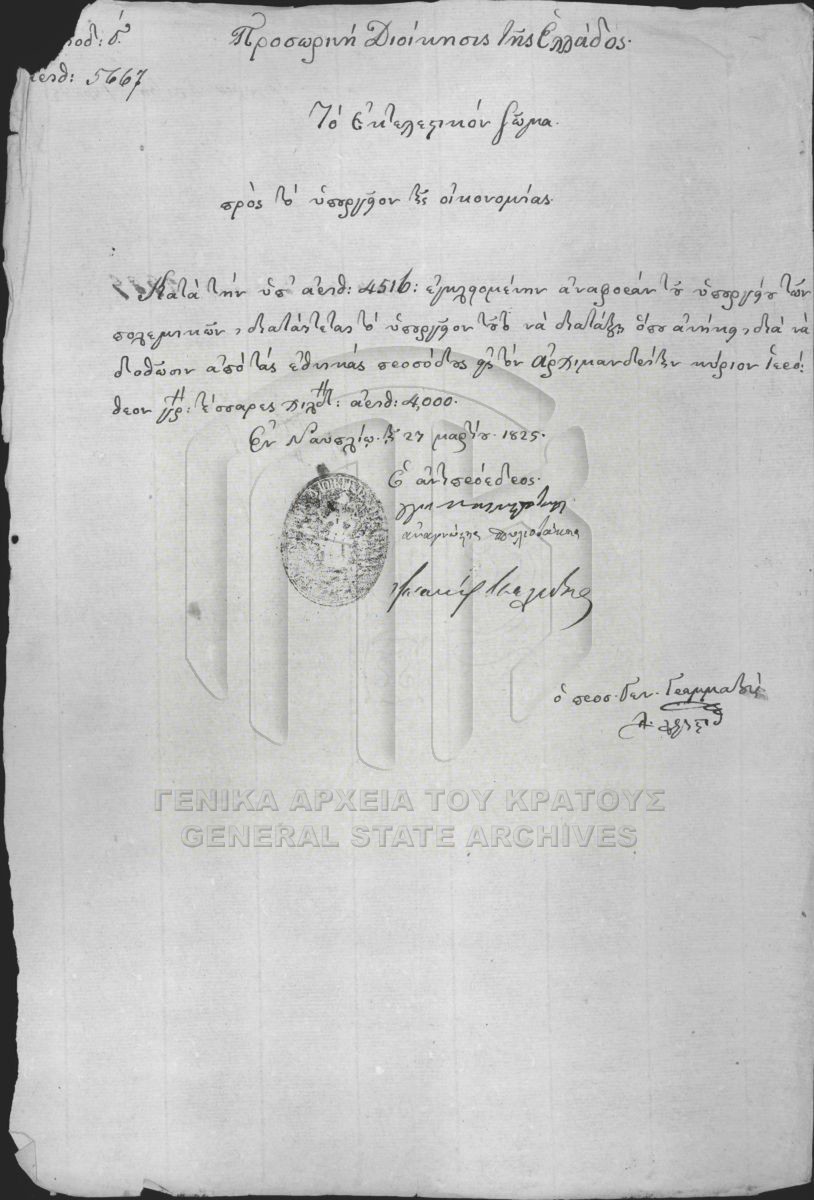 Περίοδ: δ.
ἀριθ: 5667
Προσωρινή Διοίκησις τῆς Ἑλλάδος.
Τό Ἐκτελεστικόν Σῶμα.
πρός τό ὑπουργεῖον τῆς οἰκονομίας.
Κατά τήν ὑπ' ἀριθ: 4516: ἐγκλειομένην ἀναφοράν τοῦ ὑπουργείου τῶν
πολεμικῶν, διατάττεται τό ὑπουργεῖον τοῦτο νά διατάξῃ ὅπου ἀνήκει, διά νά
δοθῶσιν ἀπό τάς ἐθνικάς προσόδους εἰς τόν ἀρχιμανδρίτην κύριον Ἱερό-
θεον γρ: τέσσαρες χιλιάδ: ἀριθ: 4,000.
Ἐν Ναυπλίῳ τῇ 27 μαρτίου 1825.
Ὁ ἀντιπρόεδρος
ἀναγνώστης
ὁ προσ. Γεν. Γραμματεύς
ΓΕΝΙΚΑ ΑΡΧΕΙΑ ΤΟΥ ΚΡΑΤΟΥΣ
GENERAL STATE ARCHIVES